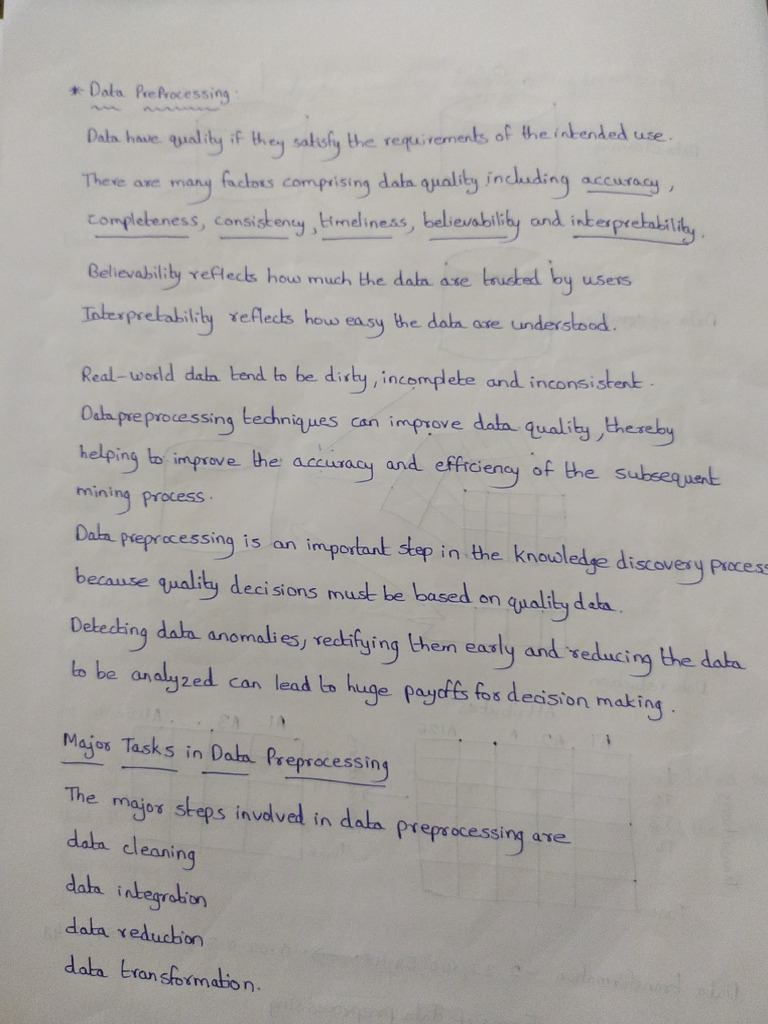 * Data PreProcessing:
Data have quality if they satisfy the requirements of the intended use.
There are many factors comprising data quality including accuracy,
completeness, consistency, timeliness, believability and interpretability.
Believability reflects how much the data are trusted by users
Interpretability reflects how easy the data are understood.
Real-world data tend to be dirty, incomplete and inconsistent.
Data preprocessing techniques can improve data quality, thereby
helping to improve the accuracy and efficiency of the subsequent
mining process.
Data preprocessing is an important step in the knowledge discovery process
because quality decisions must be based on quality data.
Detecting data anomalies, rectifying them early and reducing the data
to be analyzed can lead to huge payoffs for decision making.
Major Tasks in Data Preprocessing
The major steps involved in data preprocessing are
data cleaning
data integration
data reduction
data transformation.